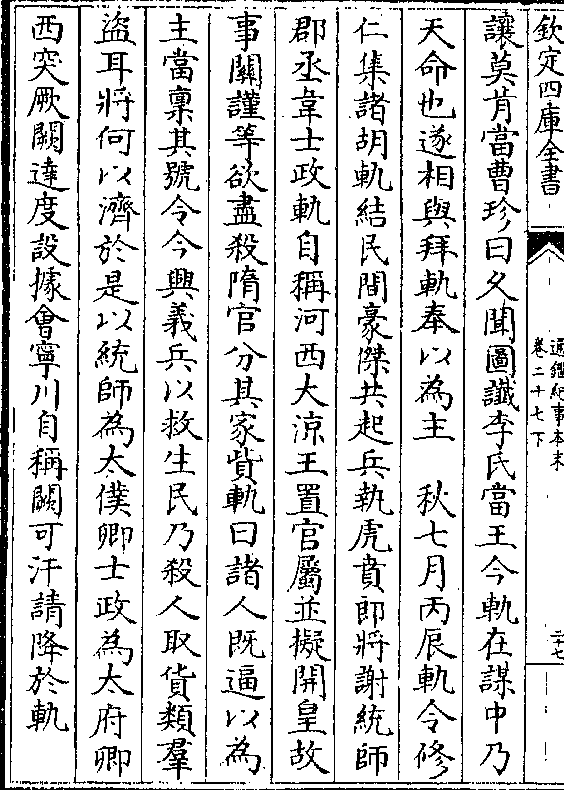 欽定四庫全書
通鑑紀事本末
卷二十七下
三十七
讓莫肯當曹珍曰久聞圖讖李氏當王今軌在謀中乃
天命也遂相與拜軌奉以為主　秋七月丙辰軌令修
仁集諸胡軌結民間豪傑共起兵執虎賁郎將謝統師
郡丞韋士政軌自稱河西大涼王置官屬並擬開皇故
事關謹等欲盡殺隋官分其家貲軌曰諸人既逼以為
主當稟其號令今興義兵以救生民乃殺人取貨類羣
盜耳將何以濟於是以統師為太僕卿士政為太府卿
西突厥闕達度設據會寧川自稱闕可汗請降於軌